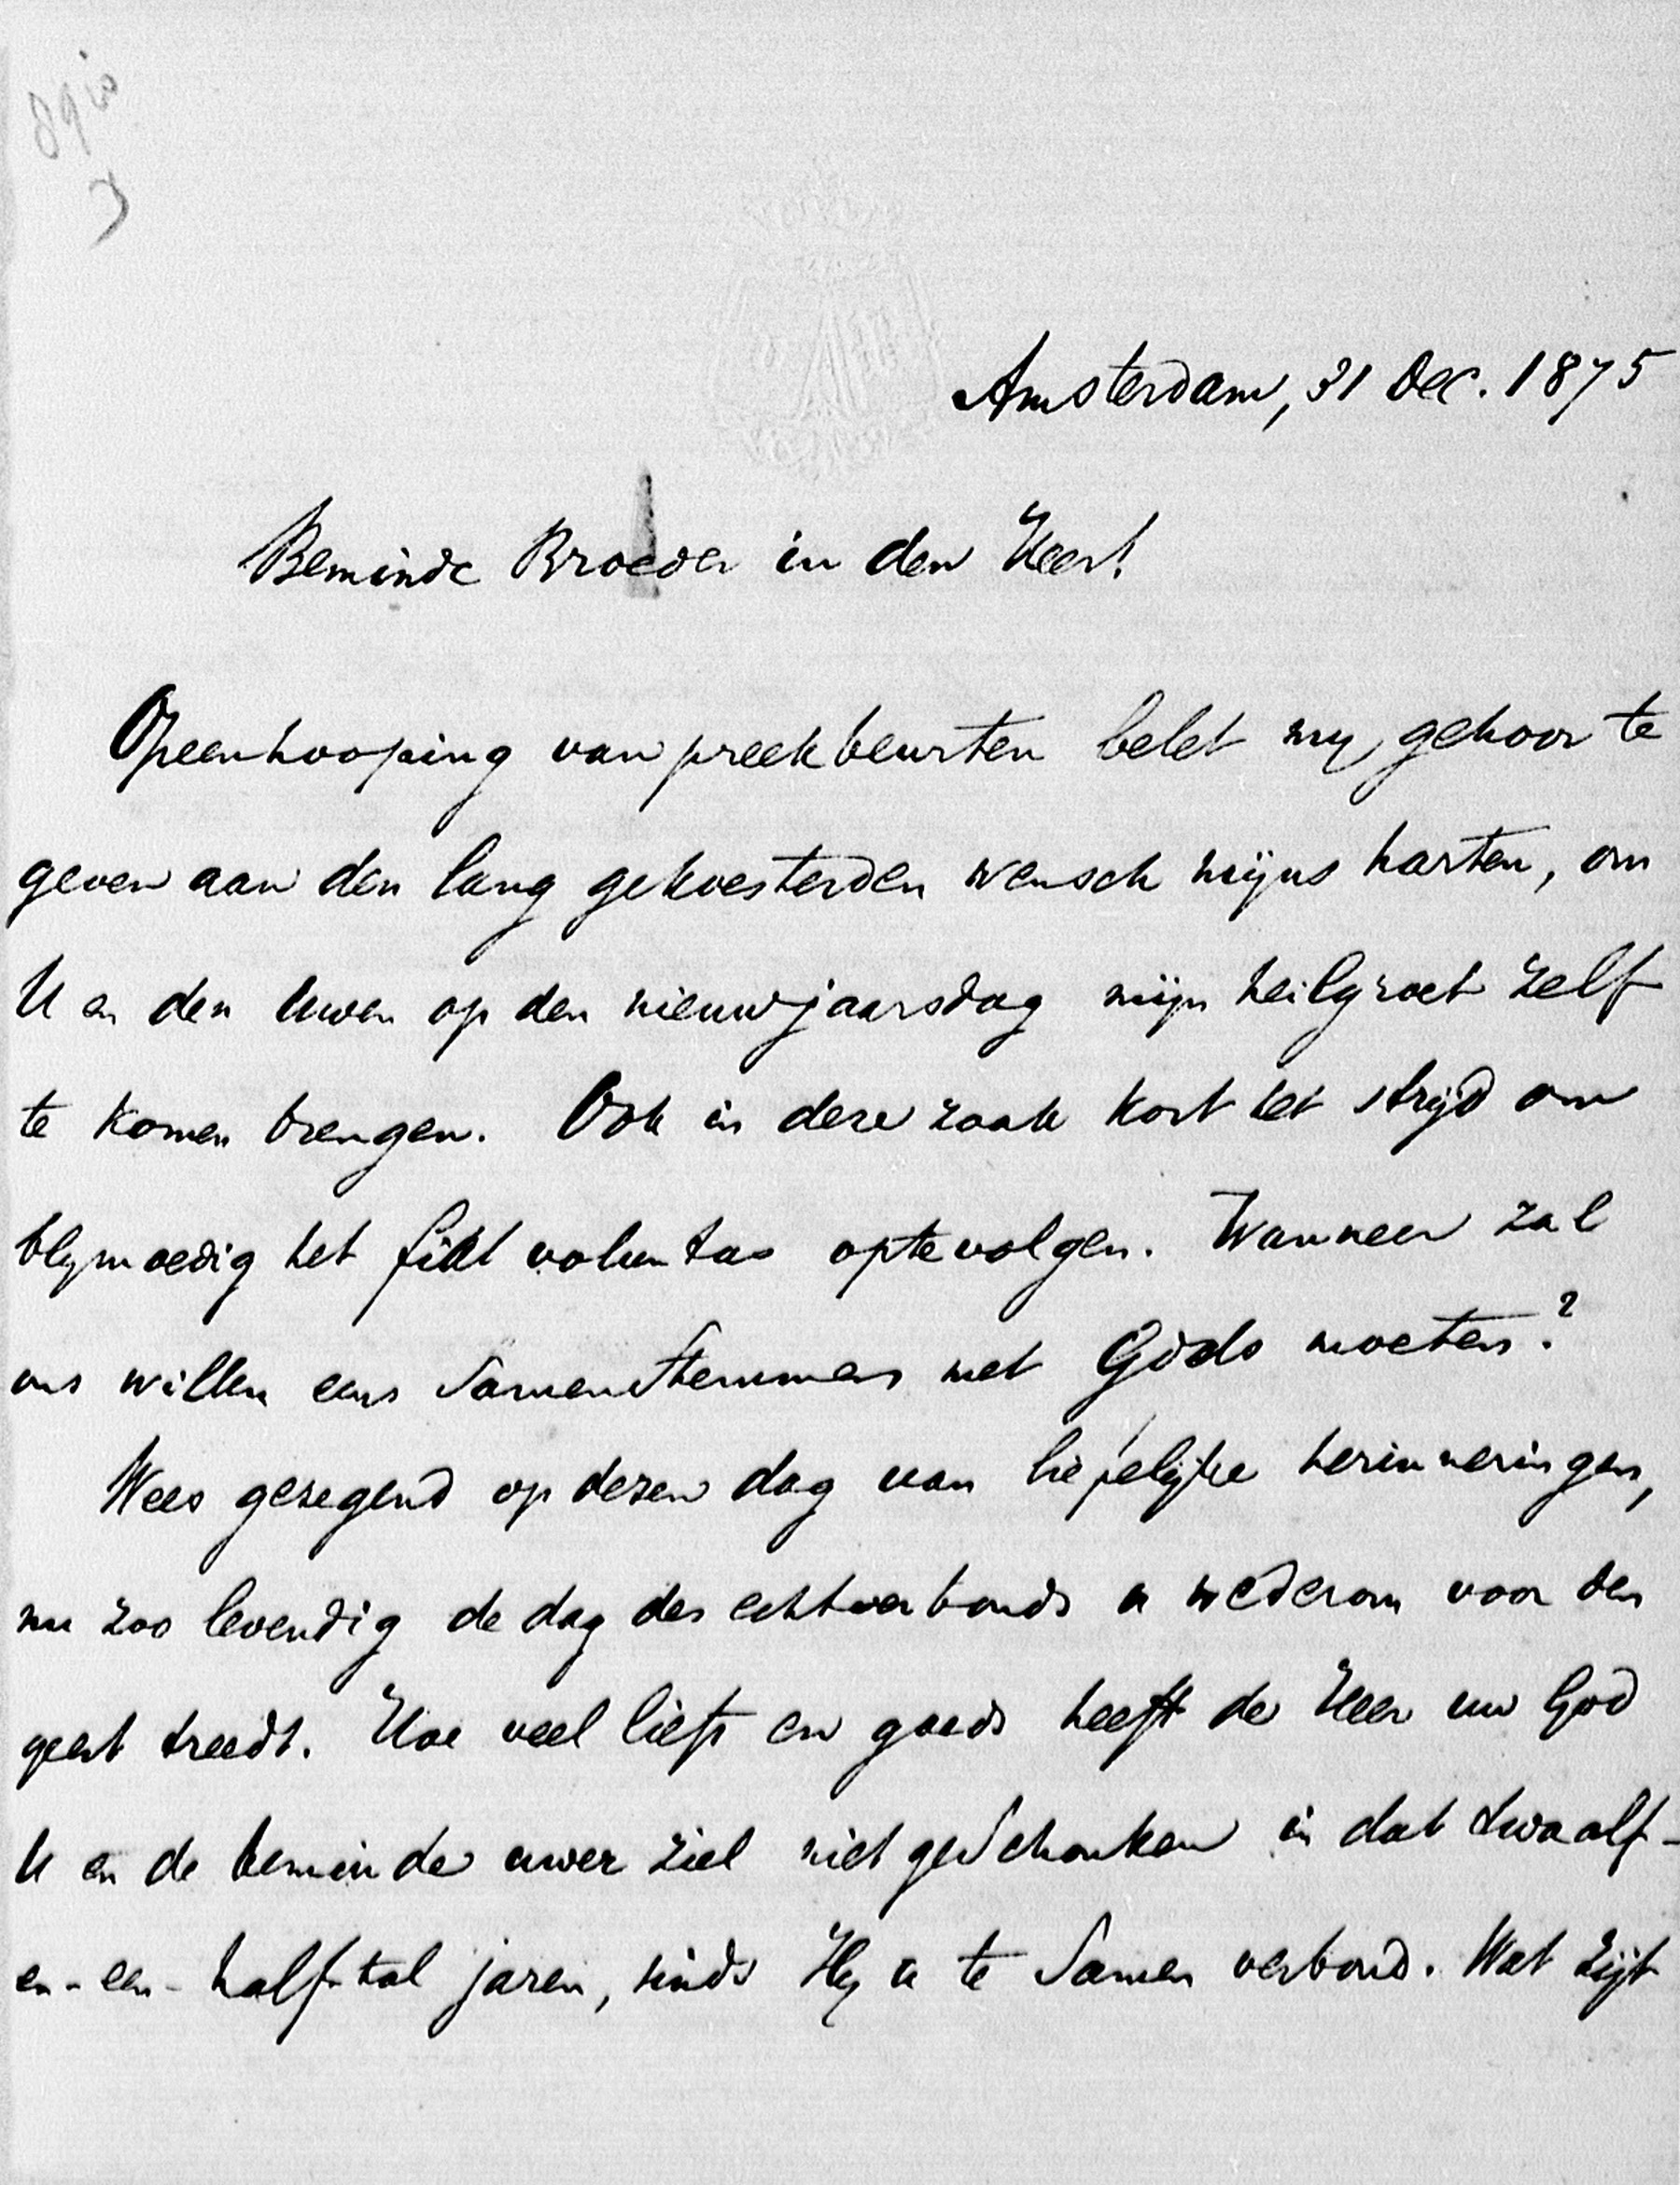 Amsterdam, 31 Dec. 1875
Beminde Broeder in den Heer!
Opeenhooping van preekbeurten belet my gehoor te
geven aan den lang gekoesterden wensch mijns harten, om
U en den Uwen op den nieuwjaarsdag mijn heilgroet zelf
te komen brengen. Ook in deze zaak kost het strijd om
blymoedig het fiat voluntas optevolgen. Wanneer zal
ons willen eens samenstemmen met Gods moeten?
Wees gezegend op dezen dag van liefelijke herinneringen,
nu zoo levendig de dag des echtverbonds u wederom voor den
geest treedt. Hoe veel liefs en goeds heeft de Heer uw God
U en de beminde uwer ziel niet geschonken in dat twaalf-
en-een-halftal jaren, sinds Hy u te samen verbond. Wat zijt